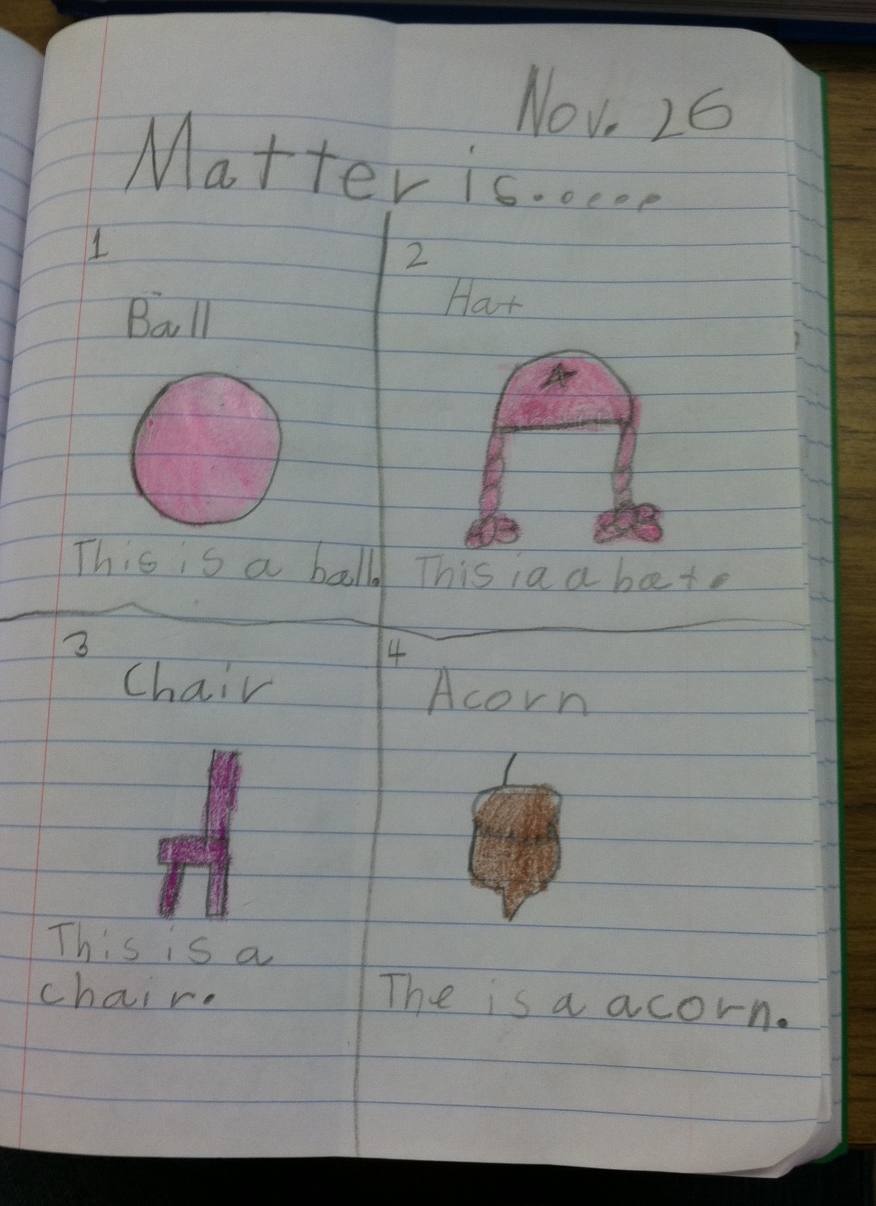 Nov. 26
Matter is......
1
Ball
This is a ball.
2
Hat
This ia a hat.
3
Chair
This is a
chair.
4
Acorn
The is a acorn.